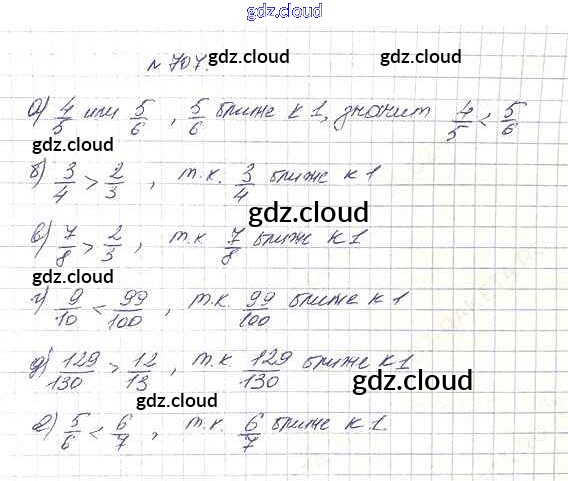 gdz.cloud
№ 707.
gdz.cloud gdz.cloud
а) 4/5 или 5/6 , 5/6 ближе к 1, значит 4/5 < 5/6
gdz.cloud gdz.cloud
б) 3/4 > 2/3 , т.к. 3/4 ближе к 1
gdz.cloud
в) 7/8 > 2/3 , т.к 7/8 ближе к 1
gdz.cloud
г) 9/10 < 99/100 , т.к. 99/100 ближе к 1
gdz.cloud
д) 129/130 > 12/13 , т.к. 129/130 ближе к 1
gdz.cloud gdz.cloud
е) 5/6 < 6/7 , т.к. 6/7 ближе к 1.